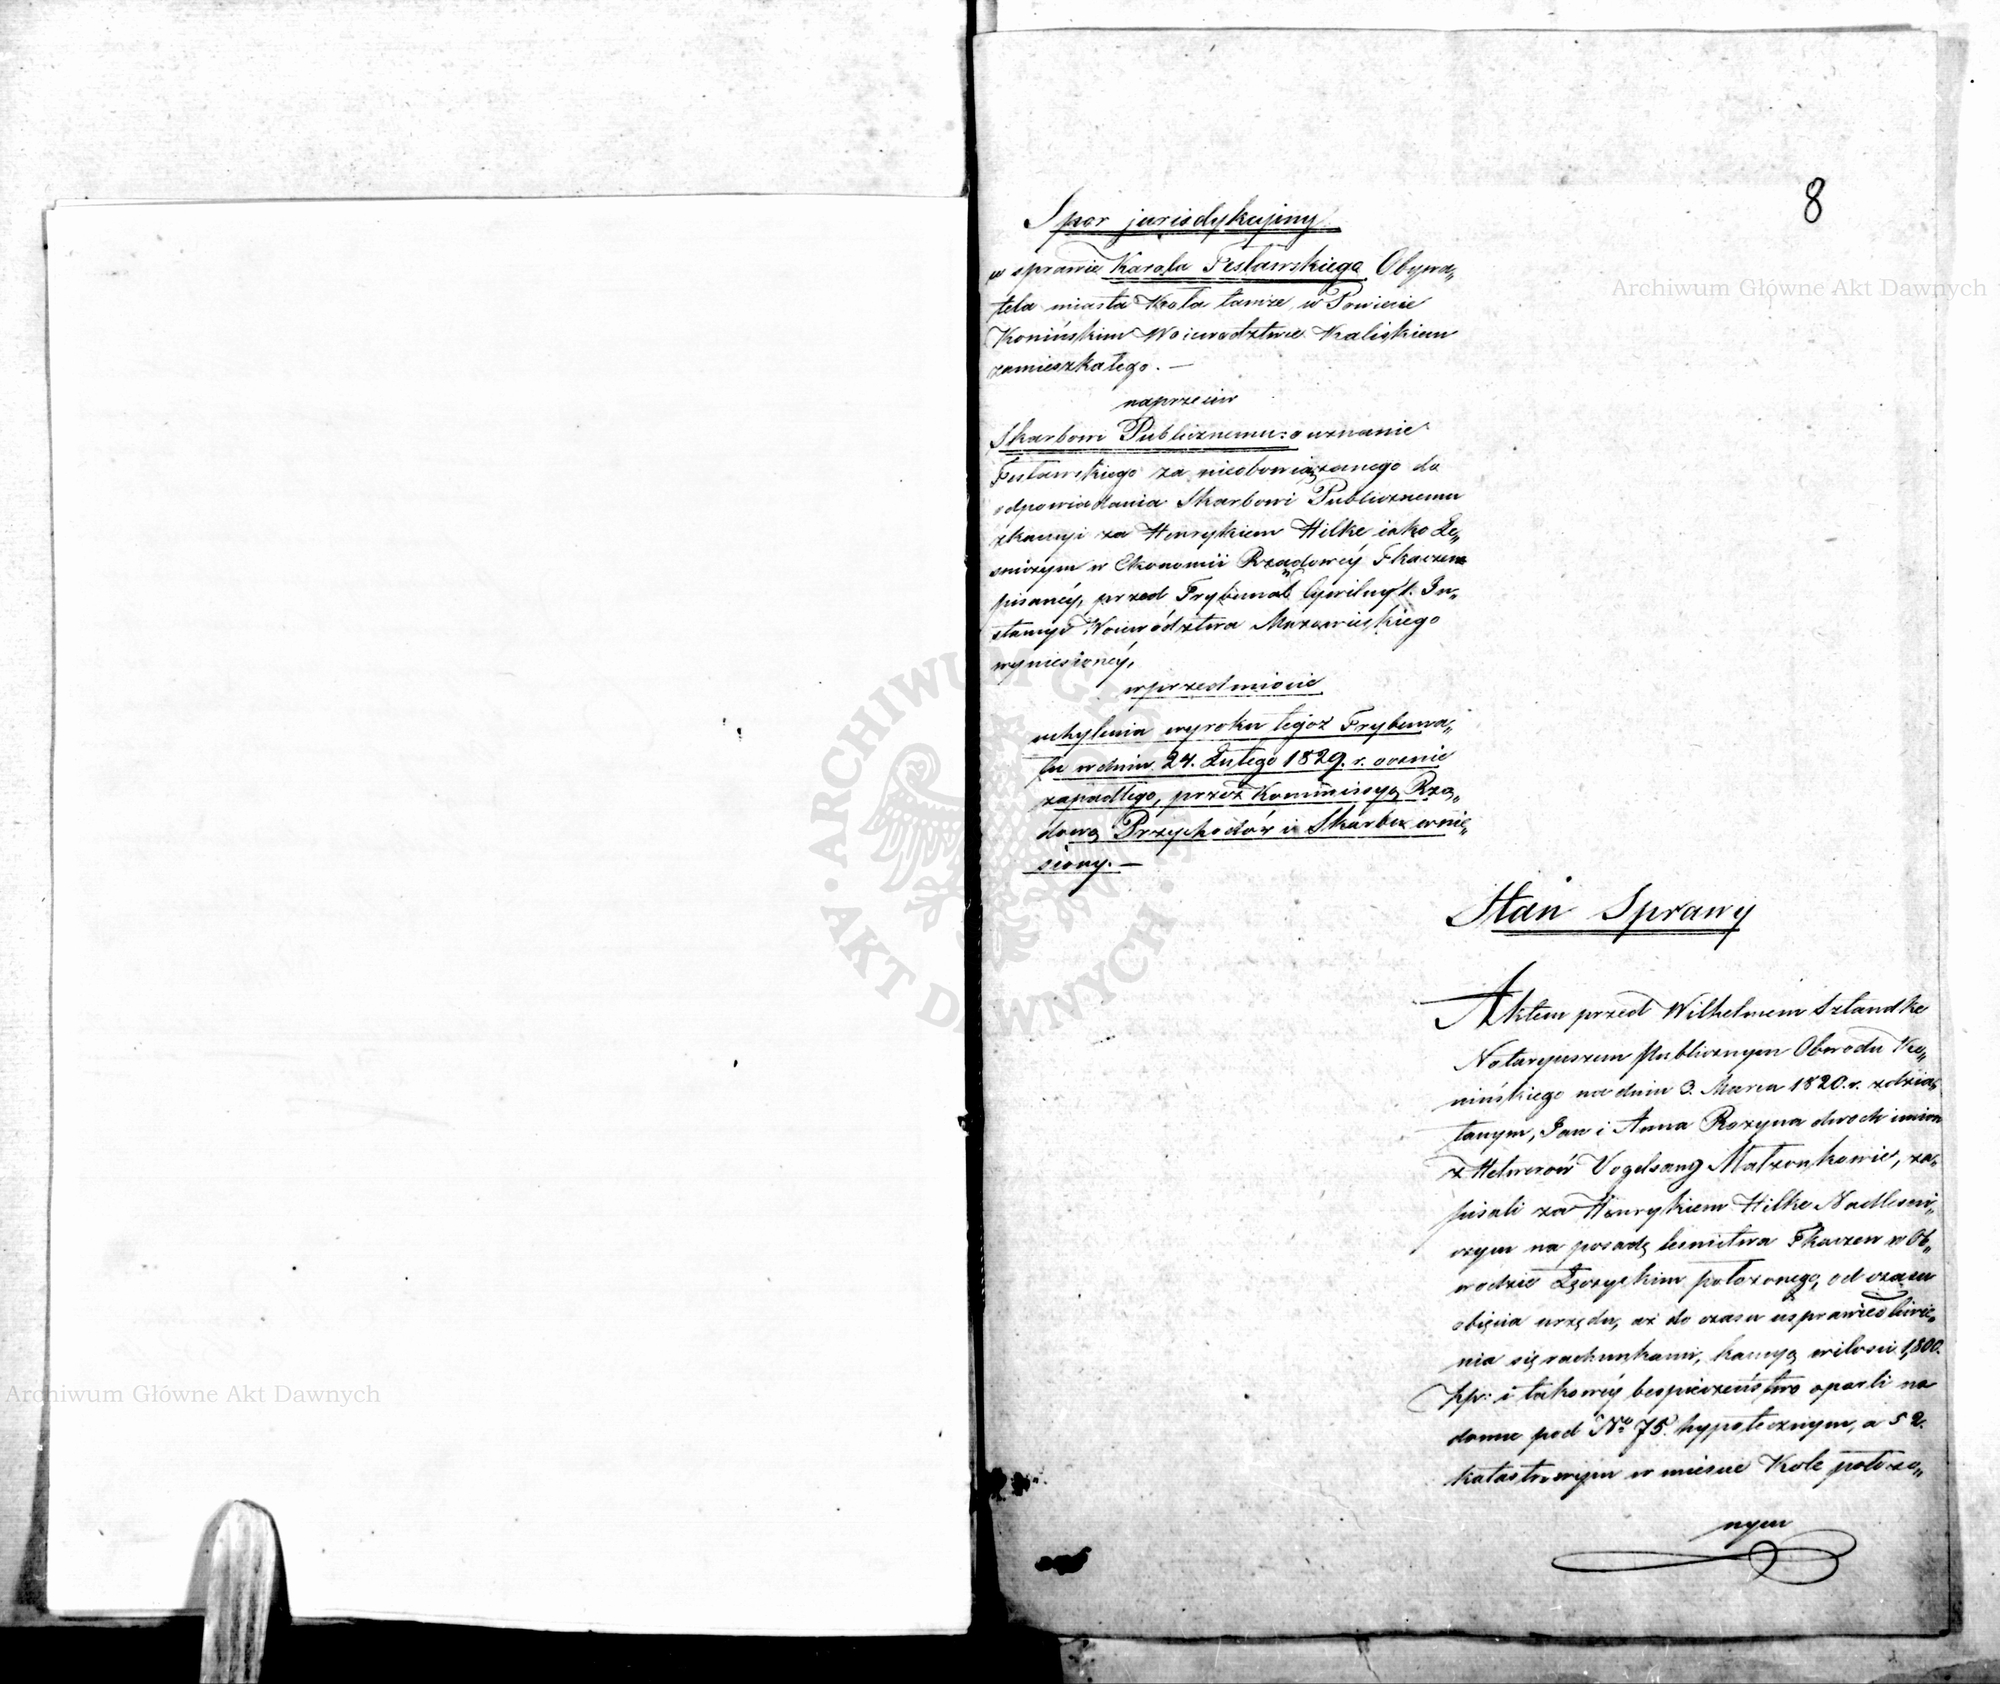 8
Spor jurisdykcyiny
w sprawie Karola Testawskiego Obywa„
tela miasta Koła tamże, w Powiecie
Konińskim Woiewodztwie Kaliskiem
zamieszkałego. —
naprzeciw
Skarbowi Publicznemu: o uznanie
za nieobowiązanego do
odpowiadania Skarbowi Publicznemu
z kaucyi za Henrykiem Hilke iako Le„
sniczym w Ekonomii Rządowéy Tkaczew
pisanéy, przed Trybunał Cywilny I. In„
stancyi Woiewództwa Mazowieckiego
wyniesionéy,
w przedmiocie
uchylenia wyroku tegoz Trybuna„
łu w dniu 24. Lutego 1829. r. ocznie
zapadłego, przez Kommissyą Rzą„
dową Przychodów i Skarbu wnie„
siony. —
Stan Sprawy
Aktem przed Wilhelmem Sztandke
Notaryuszem Publicznym Obwodu Ko„
nińskiego na dniu 3. Marca 1820. r. zdzia„
łanym, Jan i Anna Rozyna dwoch imion
z Vogelsang Małzonkowie, za„
pisali za Henrykiem Hilke Nadlesni„
czym na posadę lesnictwa Tkaczew w Ob„
wodzie Łęczyckim położonego, od czasu
obięcia urzędu, az do czasu usprawiedliwie„
nia się rachunkami, kaucyą w ilosci 1,800.
złp: i takowéy bespieczeństwo oparli na
domu pod No 75. hypotecznym, a 52.
katastrowym w miescie Kole położo„
nym
Archiwum Główne Akt Dawnych
Archiwum Główne Akt Dawnych
ARCHIWUM GŁÓWNE · AKT DAWNYCH ·